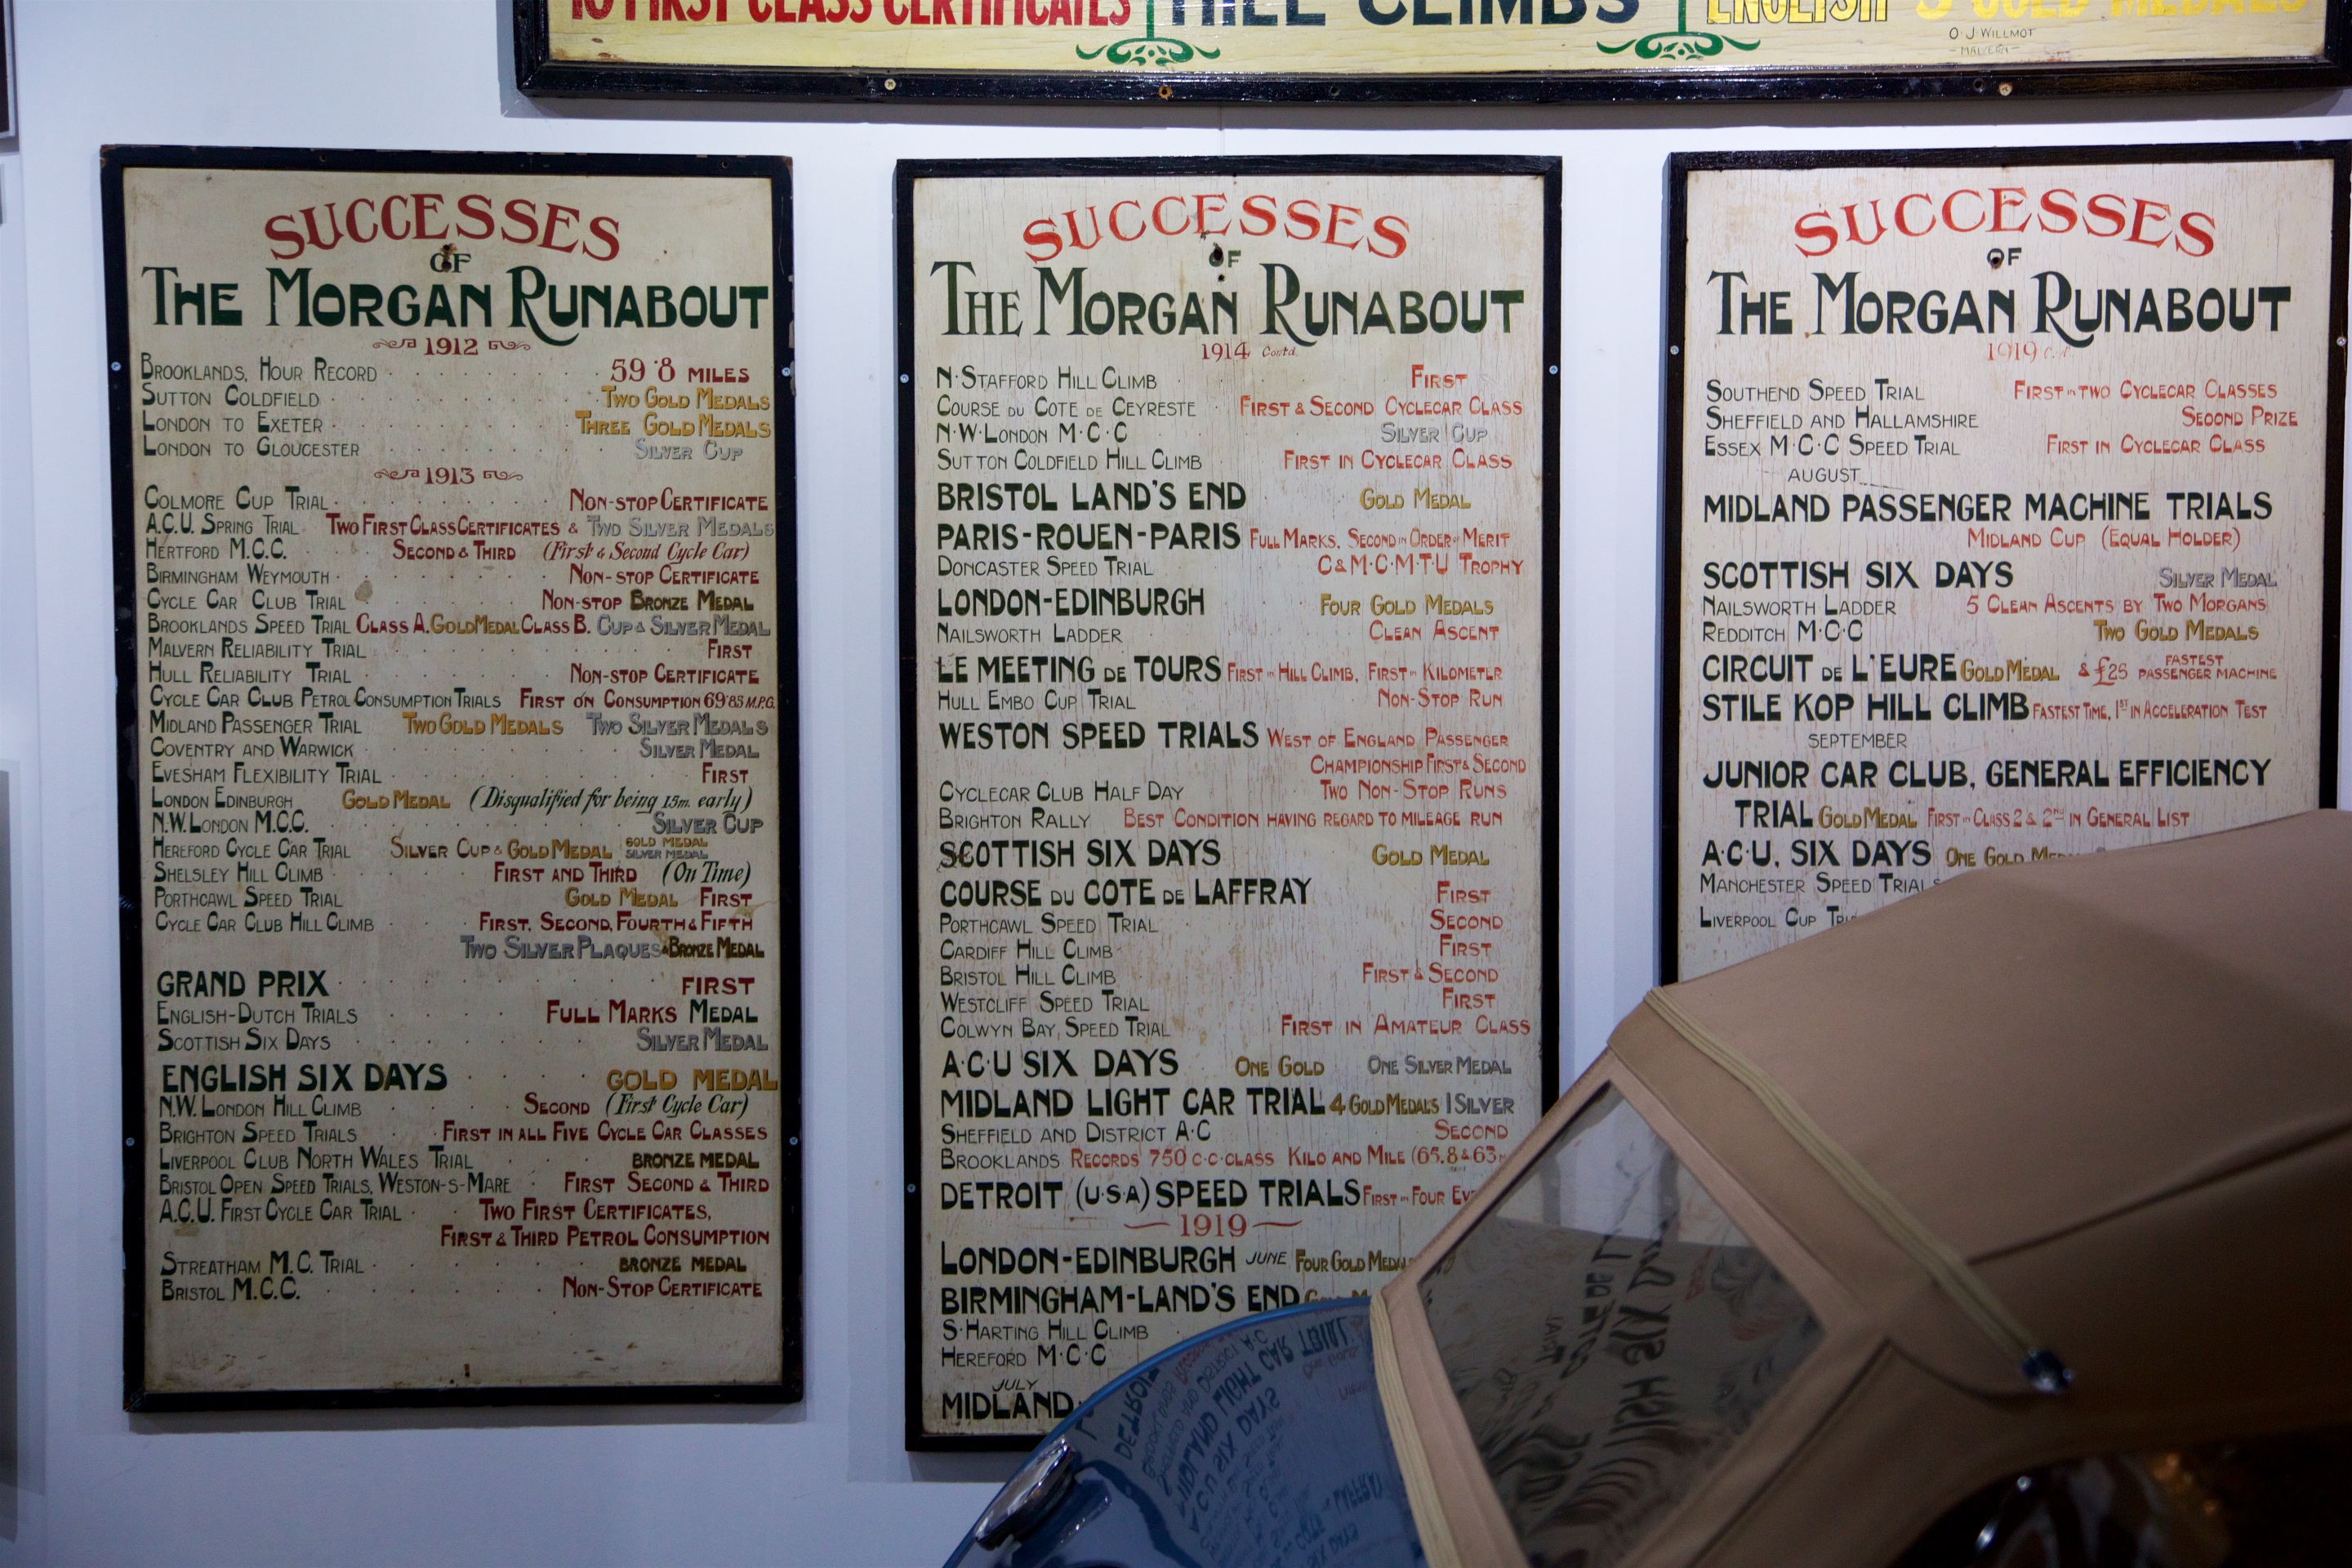 10 FIRST CLASS CERTIFICATES HILL CLIMBS ENGLISH 3 GOLD MEDALS
O·J·WILLMOT
MALVERN
SUCCESSES
OF
THE MORGAN RUNABOUT
1912
BROOKLANDS, HOUR RECORD 59·8 MILES
SUTTON COLDFIELD TWO GOLD MEDALS
LONDON TO EXETER THREE GOLD MEDALS
LONDON TO GLOUCESTER SILVER CUP
1913
COLMORE CUP TRIAL NON-STOP CERTIFICATE
A.C.U. SPRING TRIAL TWO FIRST CLASS CERTIFICATES & TWO SILVER MEDALS
HERTFORD M.C.C. SECOND & THIRD (First & Second Cycle Car)
BIRMINGHAM WEYMOUTH NON-STOP CERTIFICATE
CYCLE CAR CLUB TRIAL NON-STOP BRONZE MEDAL
BROOKLANDS SPEED TRIAL CLASS A. GOLD MEDAL CLASS B. CUP & SILVER MEDAL
MALVERN RELIABILITY TRIAL FIRST
HULL RELIABILITY TRIAL NON-STOP CERTIFICATE
CYCLE CAR CLUB PETROL CONSUMPTION TRIALS FIRST ON CONSUMPTION 69·83 M.P.G.
MIDLAND PASSENGER TRIAL TWO GOLD MEDALS TWO SILVER MEDALS
COVENTRY AND WARWICK SILVER MEDAL
EVESHAM FLEXIBILITY TRIAL FIRST
LONDON EDINBURGH GOLD MEDAL (Disqualified for being 15m. early)
N.W. LONDON M.C.C. SILVER CUP
HEREFORD CYCLE CAR TRIAL SILVER CUP & GOLD MEDAL GOLD MEDAL SILVER MEDAL
SHELSLEY HILL CLIMB FIRST AND THIRD (On Time)
PORTHCAWL SPEED TRIAL GOLD MEDAL FIRST
CYCLE CAR CLUB HILL CLIMB FIRST, SECOND, FOURTH & FIFTH
TWO SILVER PLAQUES & BRONZE MEDAL
GRAND PRIX FIRST
ENGLISH-DUTCH TRIALS FULL MARKS MEDAL
SCOTTISH SIX DAYS SILVER MEDAL
ENGLISH SIX DAYS GOLD MEDAL
N.W. LONDON HILL CLIMB SECOND (First Cycle Car)
BRIGHTON SPEED TRIALS FIRST IN ALL FIVE CYCLE CAR CLASSES
LIVERPOOL CLUB NORTH WALES TRIAL BRONZE MEDAL
BRISTOL OPEN SPEED TRIALS, WESTON-S-MARE FIRST SECOND & THIRD
A.C.U. FIRST CYCLE CAR TRIAL TWO FIRST CERTIFICATES,
FIRST & THIRD PETROL CONSUMPTION
STREATHAM M.C. TRIAL BRONZE MEDAL
BRISTOL M.C.C. NON-STOP CERTIFICATE
SUCCESSES
OF
THE MORGAN RUNABOUT
1914 Contd.
N·STAFFORD HILL CLIMB FIRST
COURSE DU COTE DE CEYRESTE FIRST & SECOND CYCLECAR CLASS
N·W·LONDON M·C·C SILVER CUP
SUTTON COLDFIELD HILL CLIMB FIRST IN CYCLECAR CLASS
BRISTOL LAND'S END GOLD MEDAL
PARIS-ROUEN-PARIS FULL MARKS, SECOND IN ORDER OF MERIT
DONCASTER SPEED TRIAL C&M·C·M·T·U TROPHY
LONDON-EDINBURGH FOUR GOLD MEDALS
NAILSWORTH LADDER CLEAN ASCENT
LE MEETING DE TOURS FIRST IN HILL CLIMB, FIRST IN KILOMETER
HULL EMBO CUP TRIAL NON-STOP RUN
WESTON SPEED TRIALS WEST OF ENGLAND PASSENGER
CHAMPIONSHIP FIRST & SECOND
CYCLECAR CLUB HALF DAY TWO NON-STOP RUNS
BRIGHTON RALLY BEST CONDITION HAVING REGARD TO MILEAGE RUN
SCOTTISH SIX DAYS GOLD MEDAL
COURSE DU COTE DE LAFFRAY FIRST
PORTHCAWL SPEED TRIAL SECOND
CARDIFF HILL CLIMB FIRST
BRISTOL HILL CLIMB FIRST & SECOND
WESTCLIFF SPEED TRIAL FIRST
COLWYN BAY, SPEED TRIAL FIRST IN AMATEUR CLASS
A·C·U SIX DAYS ONE GOLD ONE SILVER MEDAL
MIDLAND LIGHT CAR TRIAL 4 GOLD MEDALS 1 SILVER
SHEFFIELD AND DISTRICT A·C SECOND
BROOKLANDS RECORDS 750 C·C·CLASS KILO AND MILE (65.8 & 63
DETROIT (U·S·A) SPEED TRIALS FIRST IN FOUR EV
1919
LONDON-EDINBURGH JUNE FOUR GOLD MEDAL
BIRMINGHAM-LAND'S END
S·HARTING HILL CLIMB
HEREFORD M·C·C
JULY
MIDLAND
SUCCESSES
OF
THE MORGAN RUNABOUT
1919
SOUTHEND SPEED TRIAL FIRST IN TWO CYCLECAR CLASSES
SHEFFIELD AND HALLAMSHIRE SECOND PRIZE
ESSEX M·C·C SPEED TRIAL FIRST IN CYCLECAR CLASS
AUGUST
MIDLAND PASSENGER MACHINE TRIALS
MIDLAND CUP (EQUAL HOLDER)
SCOTTISH SIX DAYS SILVER MEDAL
NAILSWORTH LADDER 5 CLEAN ASCENTS BY TWO MORGANS
REDDITCH M·C·C TWO GOLD MEDALS
CIRCUIT DE L'EURE GOLD MEDAL & £25 FASTEST PASSENGER MACHINE
STILE KOP HILL CLIMB FASTEST TIME, 1ST IN ACCELERATION TEST
SEPTEMBER
JUNIOR CAR CLUB, GENERAL EFFICIENCY
TRIAL GOLD MEDAL FIRST IN CLASS 2 & 2ND IN GENERAL LIST
A·C·U, SIX DAYS ONE GOLD
MANCHESTER SPEED TRIALS
LIVERPOOL CUP